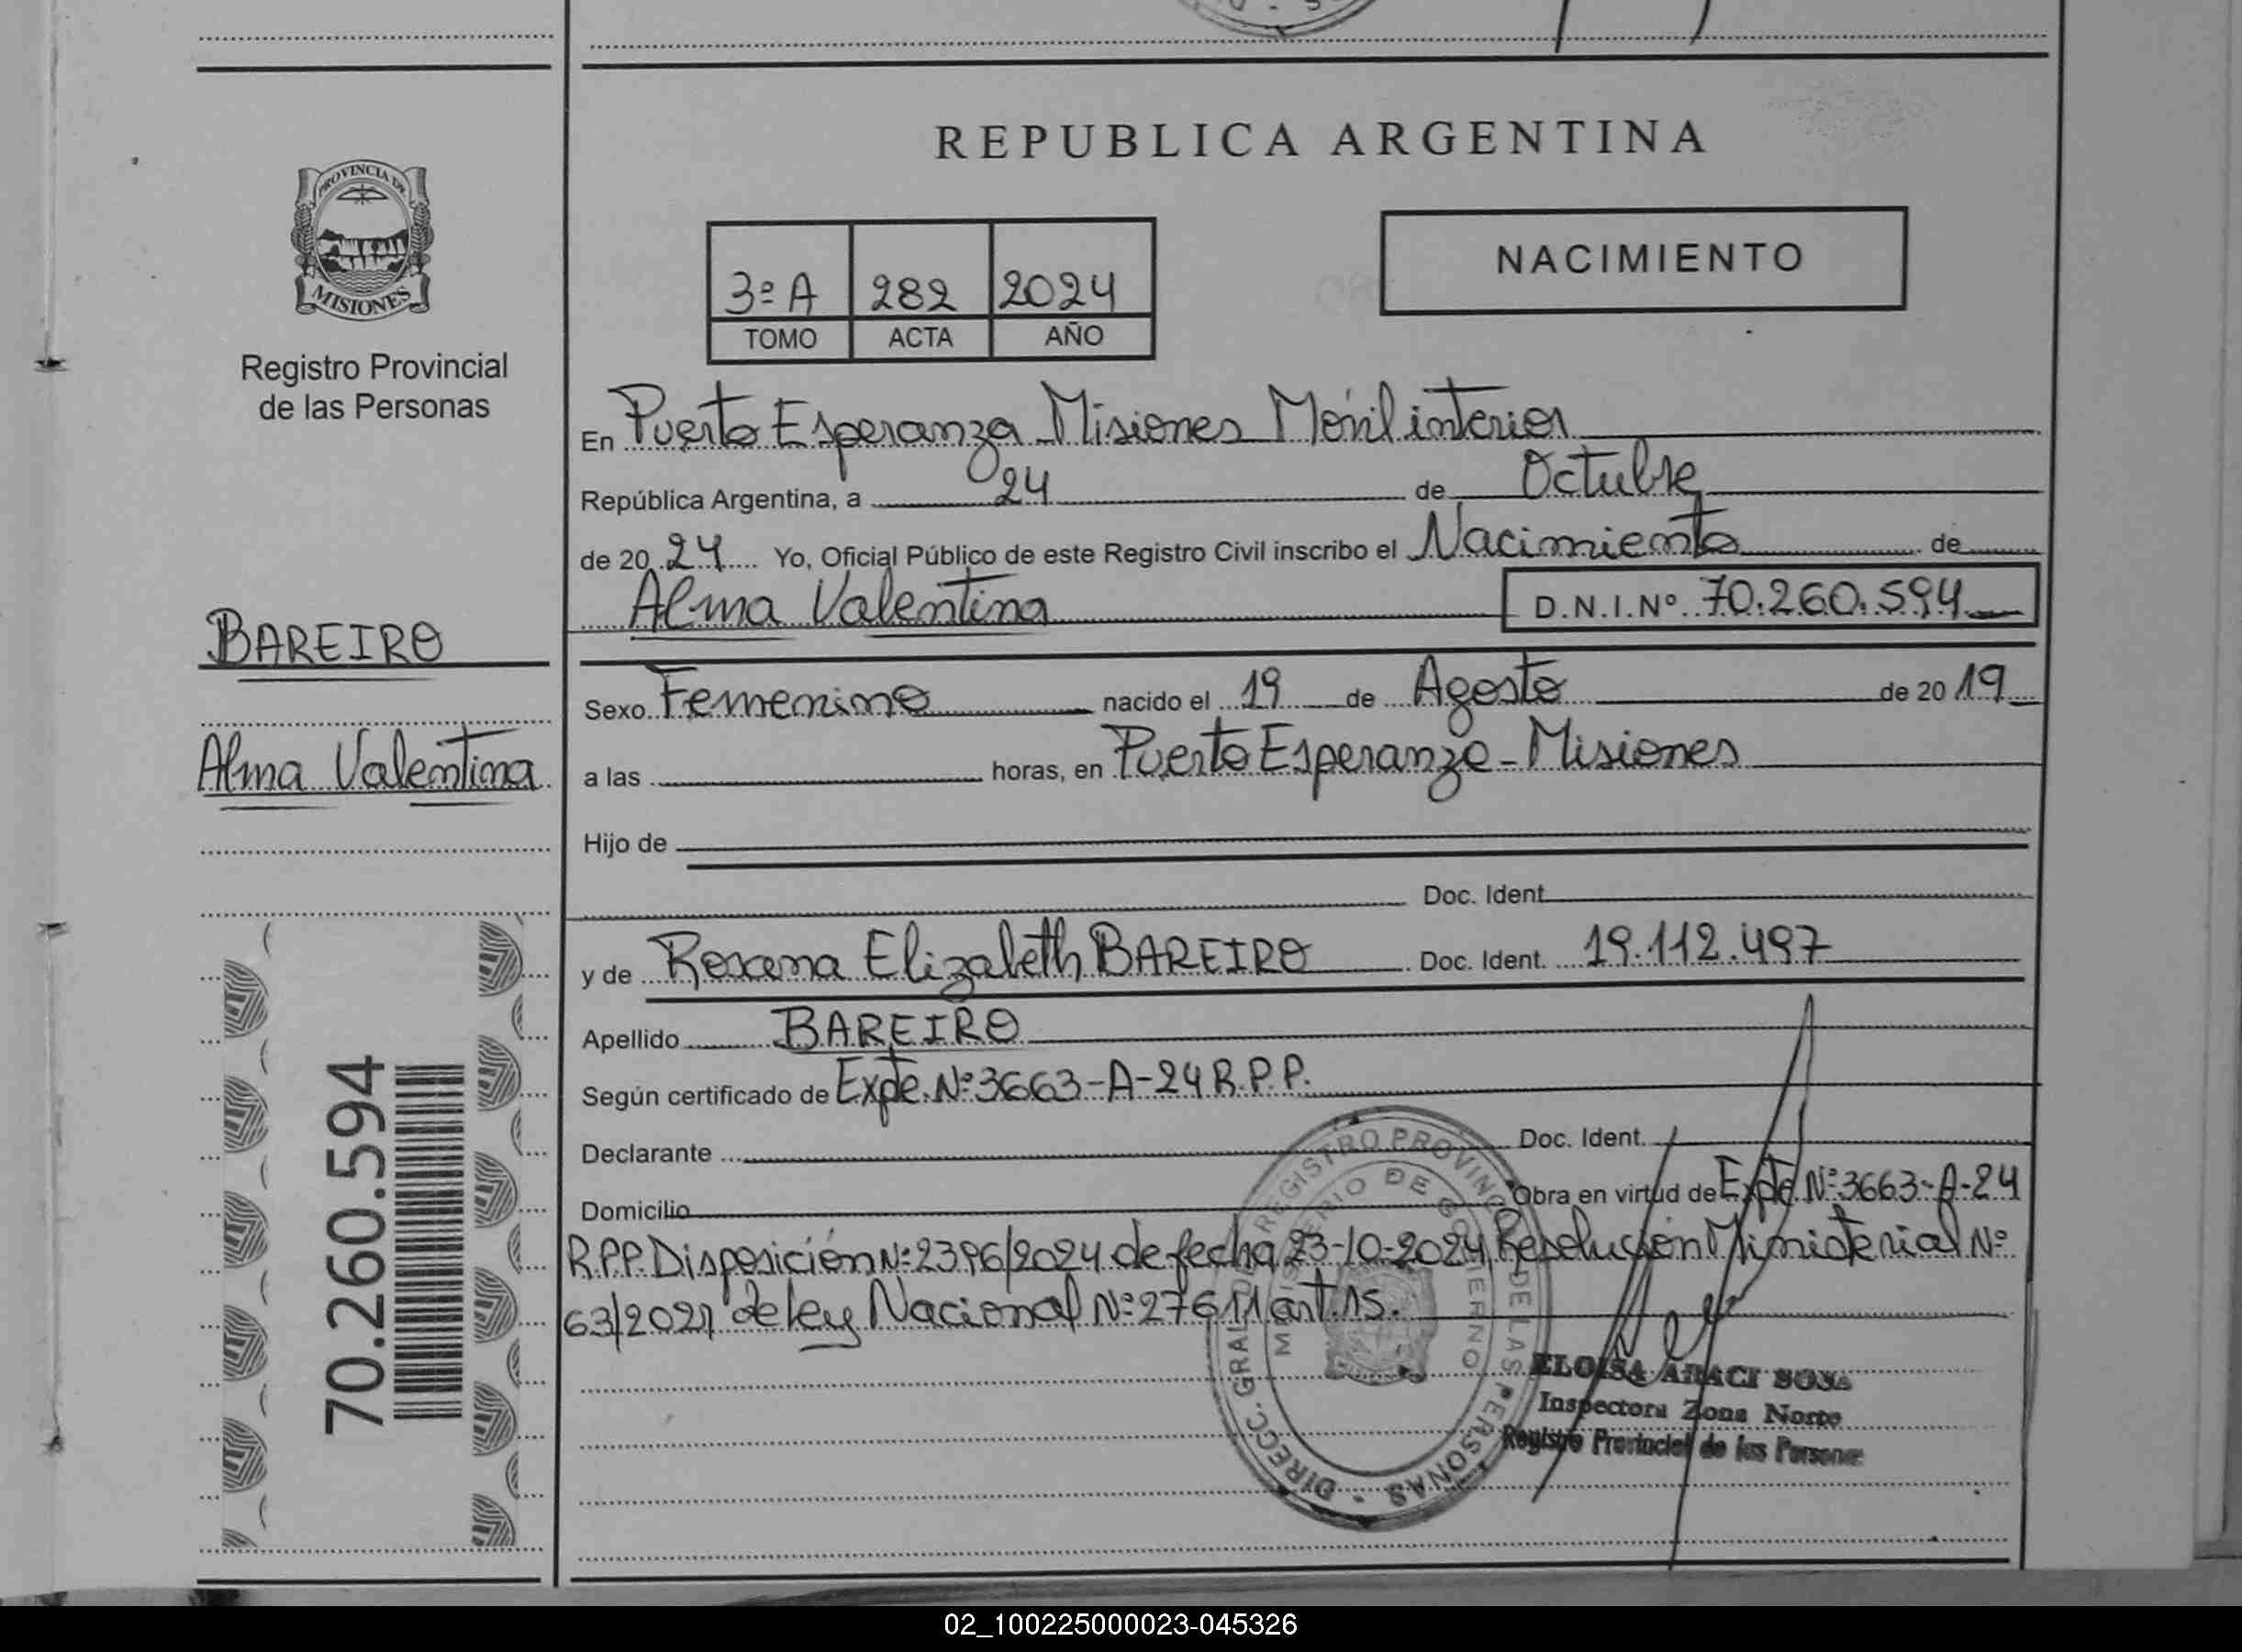 REPUBLICA ARGENTINA
PROVINCIA DE
MISIONES
Registro Provincial
de las Personas
3º A 282 2024
TOMO ACTA AÑO
NACIMIENTO
En Puerto Esperanza Misiones Móvil interior
República Argentina, a 24 de Octubre
de 20 24 Yo, Oficial Público de este Registro Civil inscribo el Nacimiento de
Alma Valentina D.N.I.Nº 70.260.594
BAREIRO
Alma Valentina
Sexo Femenino nacido el 19 de Agosto de 20 19
a las horas, en Puerto Esperanza - Misiones
Hijo de
Doc. Ident.
y de Roxana Elizabeth BAREIRO Doc. Ident. 19.112.497
Apellido BAREIRO
Según certificado de Expte. Nº 3663-A-24 R.P.P.
Declarante Doc. Ident.
Domicilio Obra en virtud de Expte. Nº 3663-A-24
R.P.P. Disposición Nº 2396/2024 de fecha 23-10-2024 Resolución Ministerial Nº
63/2021 de ley Nacional Nº 27611 art. 15.
70.260.594
DIRECC. GRAL. DEL REGISTRO PROVINCIAL DE LAS PERSONAS -
MINISTERIO DE GOBIERNO
ELOISA ARACI SOSA
Inspectora Zona Norte
Registro Provincial de las Personas
02_100225000023-045326